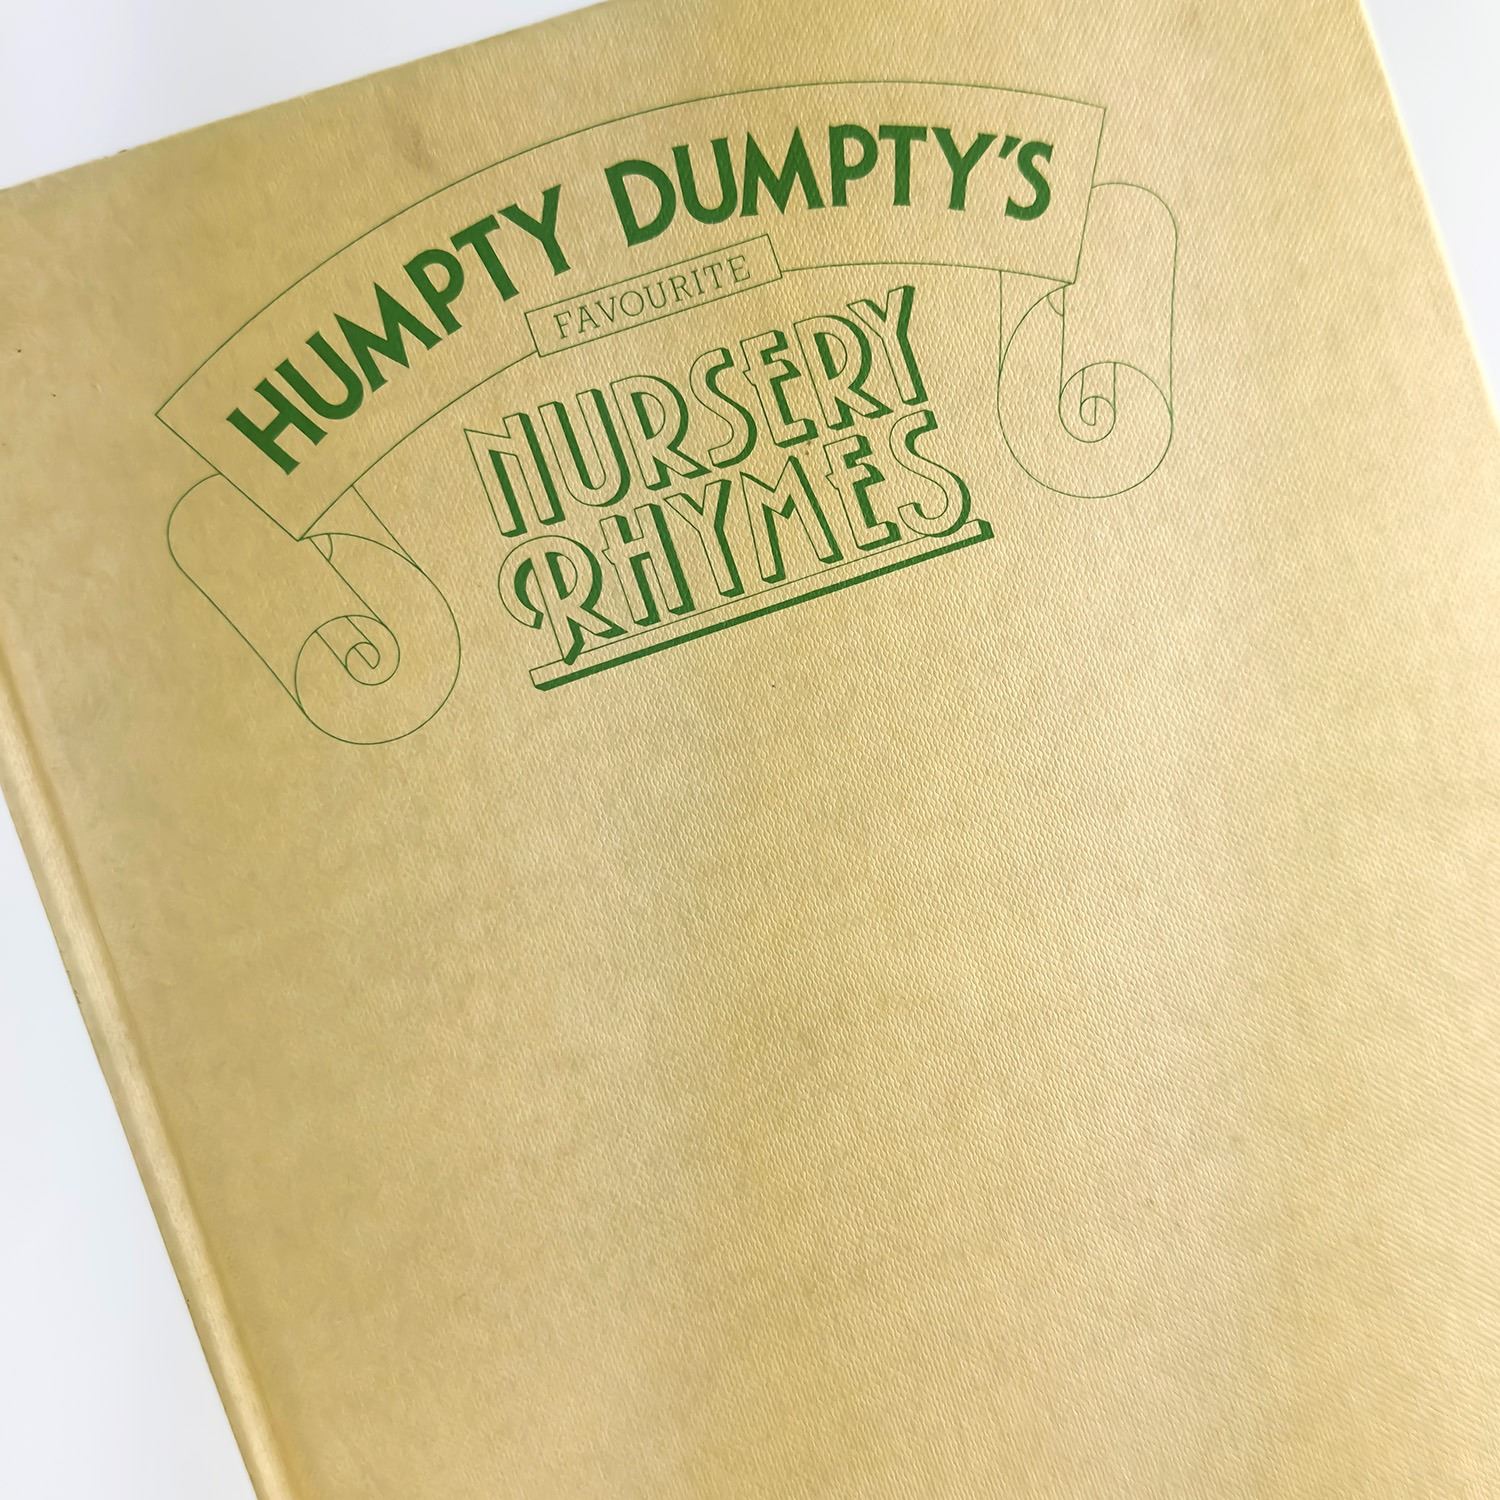 HUMPTY DUMPTY'S
FAVOURITE
NURSERY
RHYMES